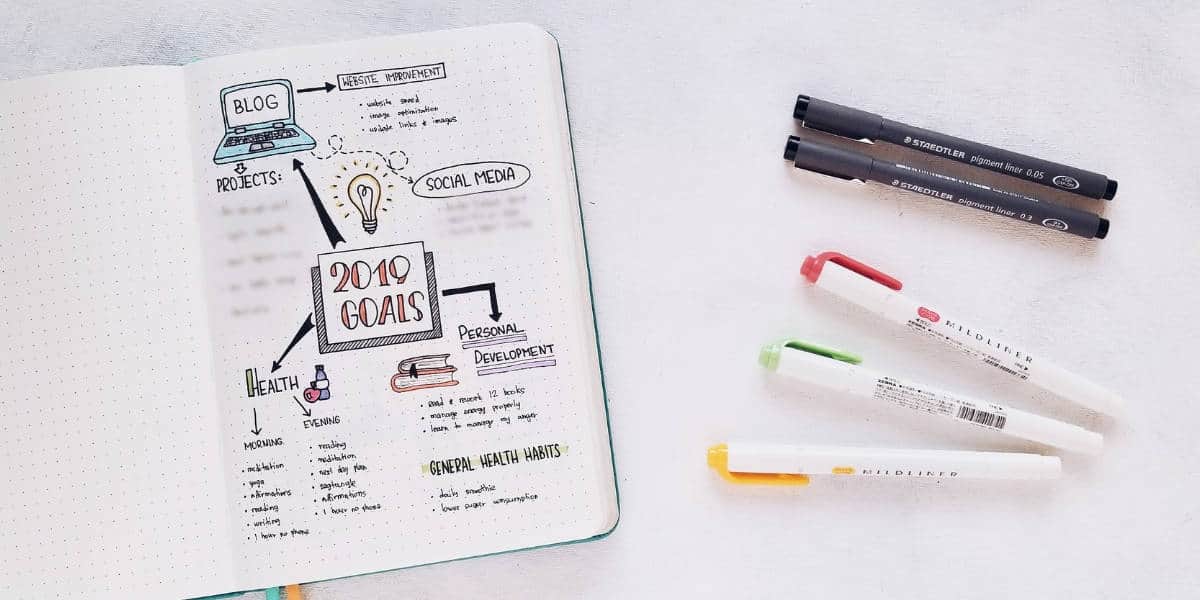 BLOG
WEBSITE IMPROVEMENT
• website speed
• image optimization
• update links & images
PROJECTS:
SOCIAL MEDIA
2019
GOALS
PERSONAL
DEVELOPMENT
• Read & 12 books
• manage energy properly
• learn to manage my anger
HEALTH
MORNING
• meditation
• yoga
• Affirmations
• reading
• writing
• 1 hour no phone
EVENING
• reading
• meditation
• next day plan
• Affirmations
• 1 hour no phone
GENERAL HEALTH HABITS
• daily smoothie
• lower sugar consumption
STAEDTLER pigment liner 0.05
STAEDTLER pigment liner 0.3
MILDLINER
ZEBRA
MILDLINER